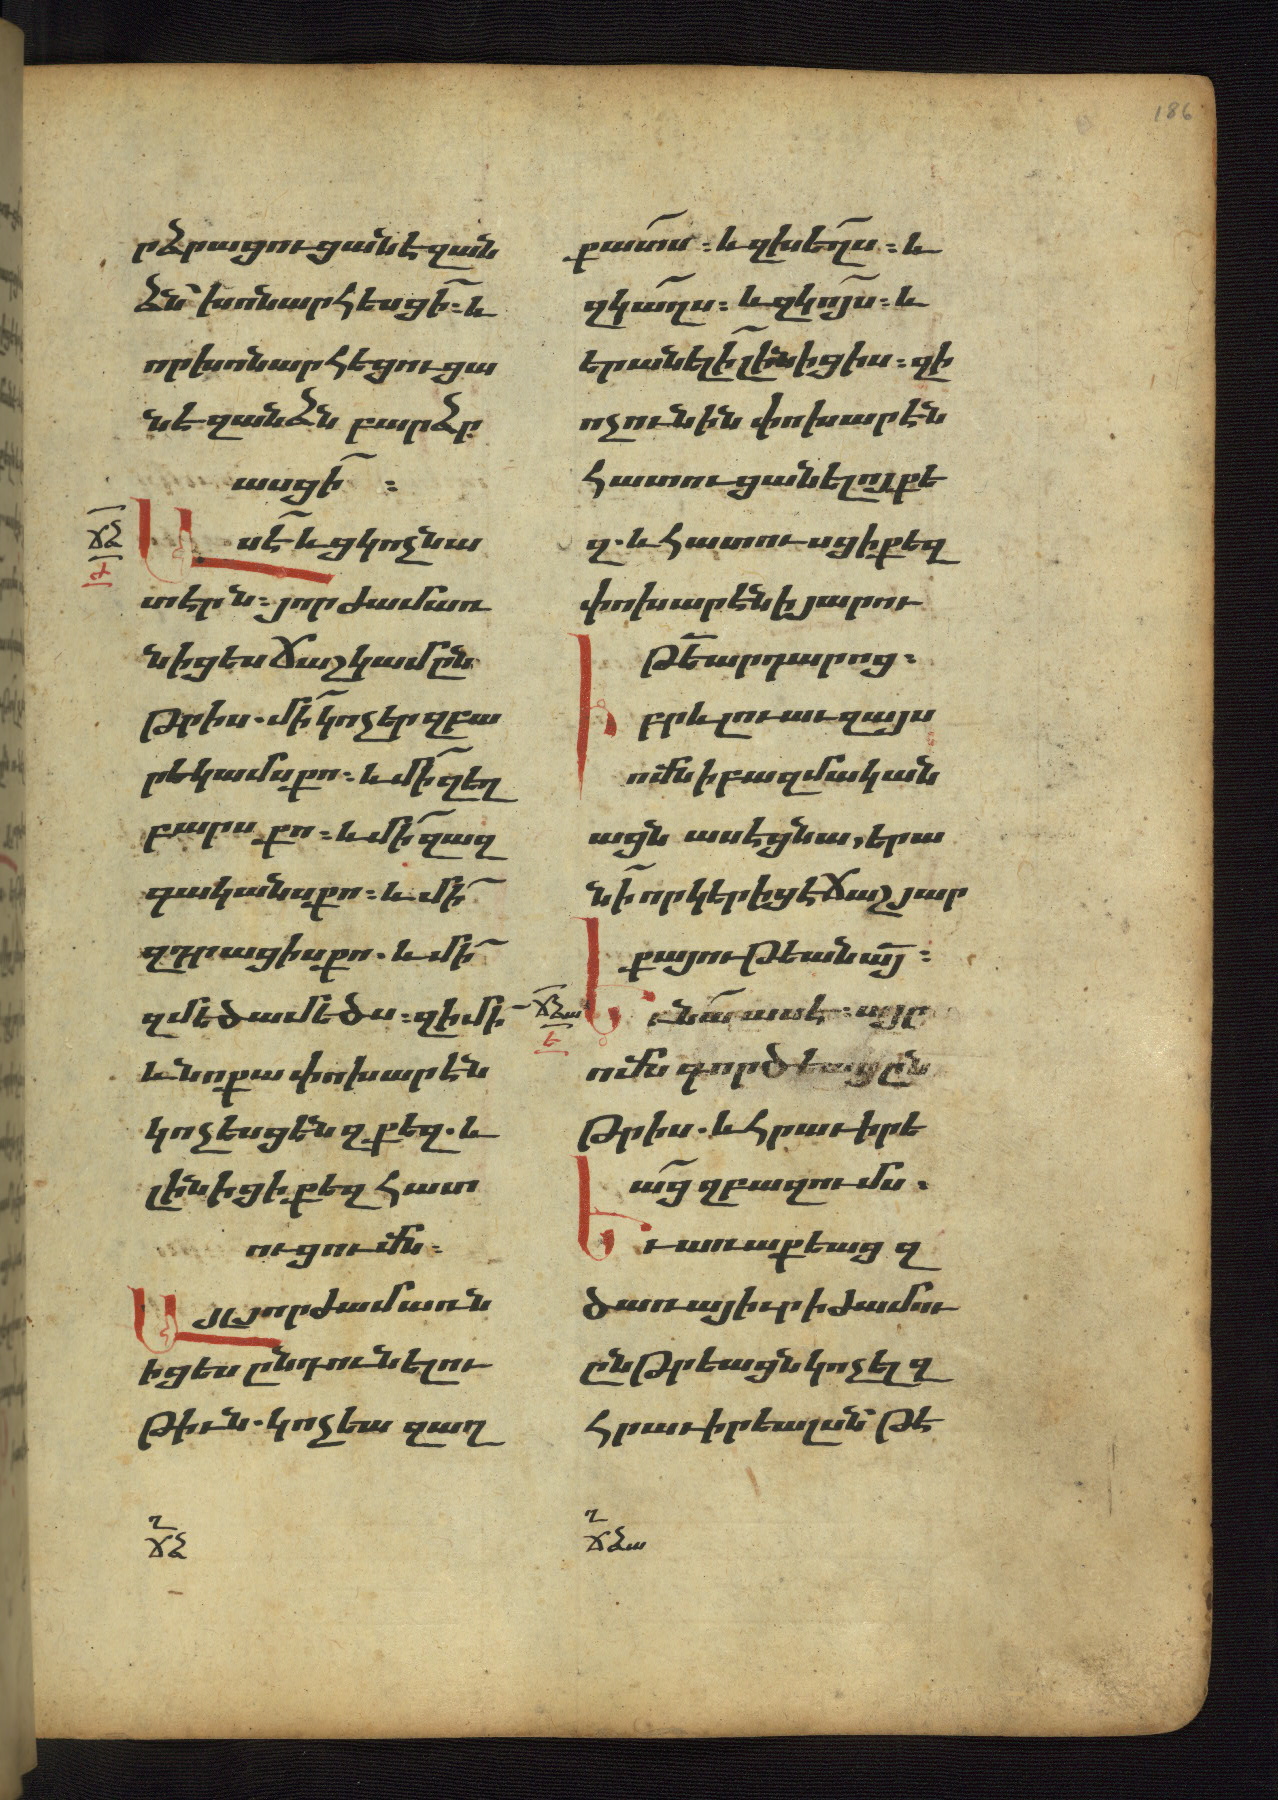 186
րձրացուցանէ զան
ձն՝ խոնարհեսցի։ և
որ խոնարհեցուցա
նէ զանձն բարձր
ասցի ։
ՃՁ
Ժ
Ասէ և ցկոչնա
տէրն։ յորժամ առ
նիցես ճաշ կամ ըն
թրիս. մի կոչեր զբա
րեկամս քո։ և մի զեղ
բարս քո։ և մի զազ
գականս քո։ և մի
զդրացիս քո. և մի
զմեծամեծս։ զի մի
և նոքա փոխարէն
կոչեսցեն զքեզ. և
լինիցի քեզ հատ
ուցումն։
Այլ յորժամ առն
իցես ընդունելու
թիւն. կոչեա զաղ
ՃՁ
քատս։ և զխեղս։ և
զկաղս։ և զկոյս։ և
երանելի լինիցիս։ զի
ոչ ունին փոխարէն
հատուցանել քե
զ. և հատուսցի քեզ
փոխարէն ի յարու
թե արդարոց։
Իբրև լուաւ զայս
ումն ի բազմական
ացն ասէ ցնա, երա
նի որ կերիցէ ճաշ յար
քայութեան այ։
ՃՁա
Ե
Եւ նա ասէ։ այր
ումն գործեաց ըն
թրիս. և հրաւիրե
աց զբազումս.
Եւ առաքեաց զ
ծառայ իւր ի ժամու
ընթրեացն կոչել զ
հրաւիրեալսն՝ թէ
ՃՁա